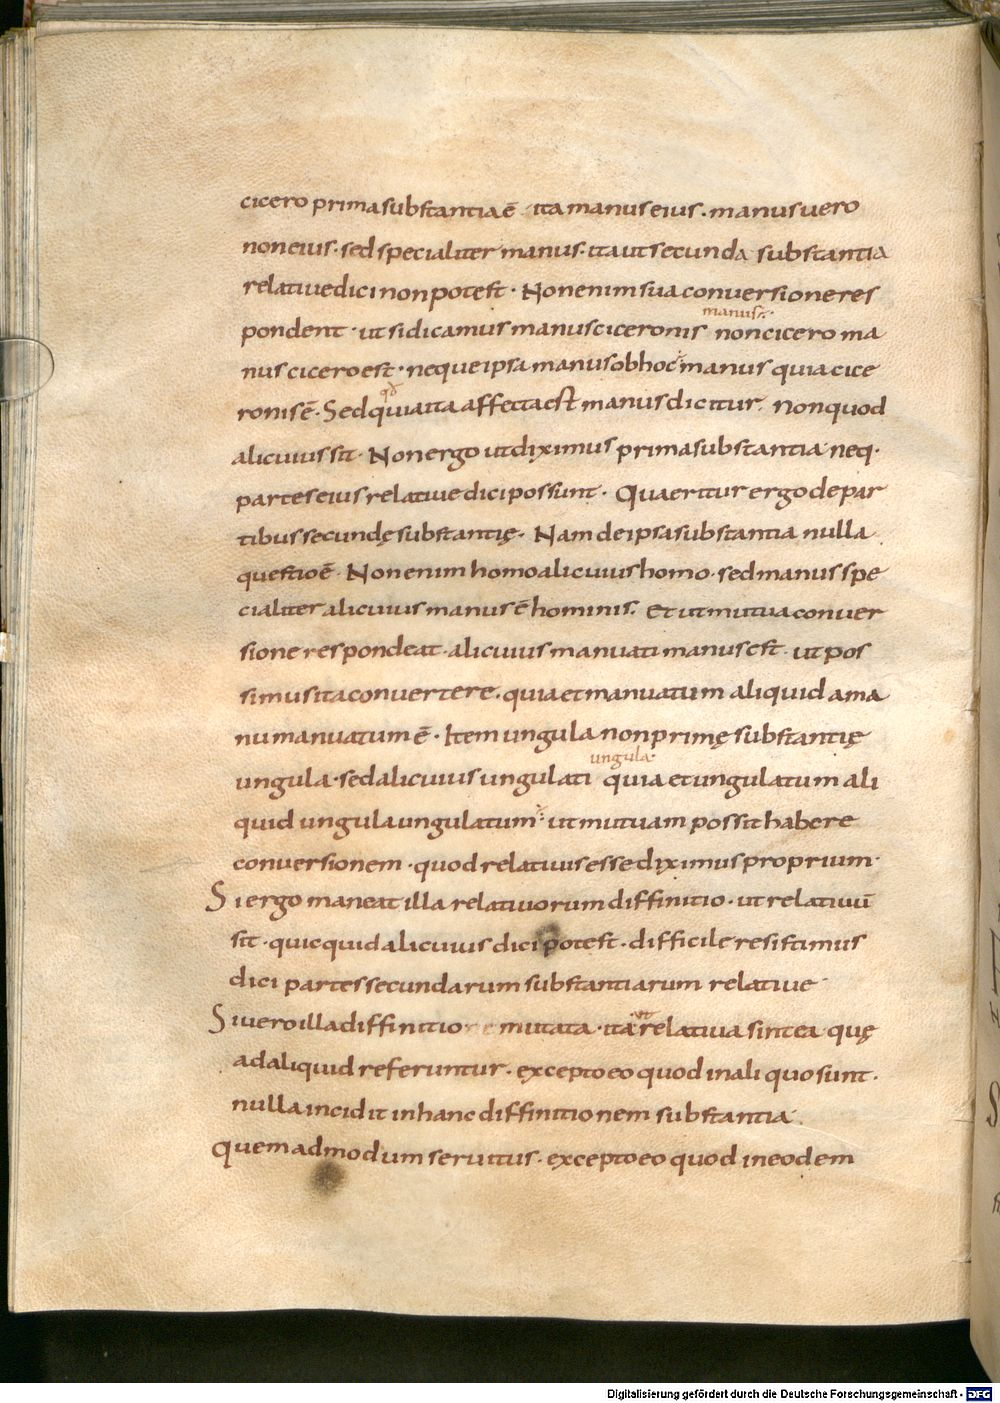 cicero prima substantia ē ita manus eius. manus uero
non eius. sed specialiter manus. ita ut secunda substantia
relatiue dici non potest. Non enim sua conuersione res
manus
pondent. ut si dicamus manus ciceronis non cicero ma
nus cicero est. neque ipsa manus ob hoc manus quia cice
ronis ē. Sed quia ita affecta est manus dicitur. non quod
alicuius sit. Non ergo ut diximus prima substantia neq.
partes eius relatiue dici possunt. Quaeritur ergo de par
tibus secundę substantię. Nam de ipsa substantia nulla
questio ē. Non enim homo alicuius homo. sed manus spe
cialiter alicuius manus ē hominis. Et ut mutua conuer
sione respondeat. alicuius manuati manus est. ut pos
simus ita conuertere. quia et manuatum aliquid a ma
nu manuatum ē. Item ungula non primę substantię
ungula
ungula. sed alicuius ungulati quia et ungulatum ali
quid ungula ungulatum ut mutuam possit habere
conuersionem. quod relatiuis esse diximus proprium.
Si ergo maneat illa relatiuorum diffinitio. ut relatiuū
sit. quicquid alicuius dici potest. difficile resistimus
dici partes secundarum substantiarum relatiue
Si uero illa diffinitio mutata. ita ut relatiua sint ea quę
ad aliquid referuntur. excepto eo quod in aliquo sunt.
nulla incidit in hanc diffinitionem substantia.
Quemadmodum seruitus. excepto eo quod in eodem
Digitalisierung gefördert durch die Deutsche Forschungsgemeinschaft - DFG